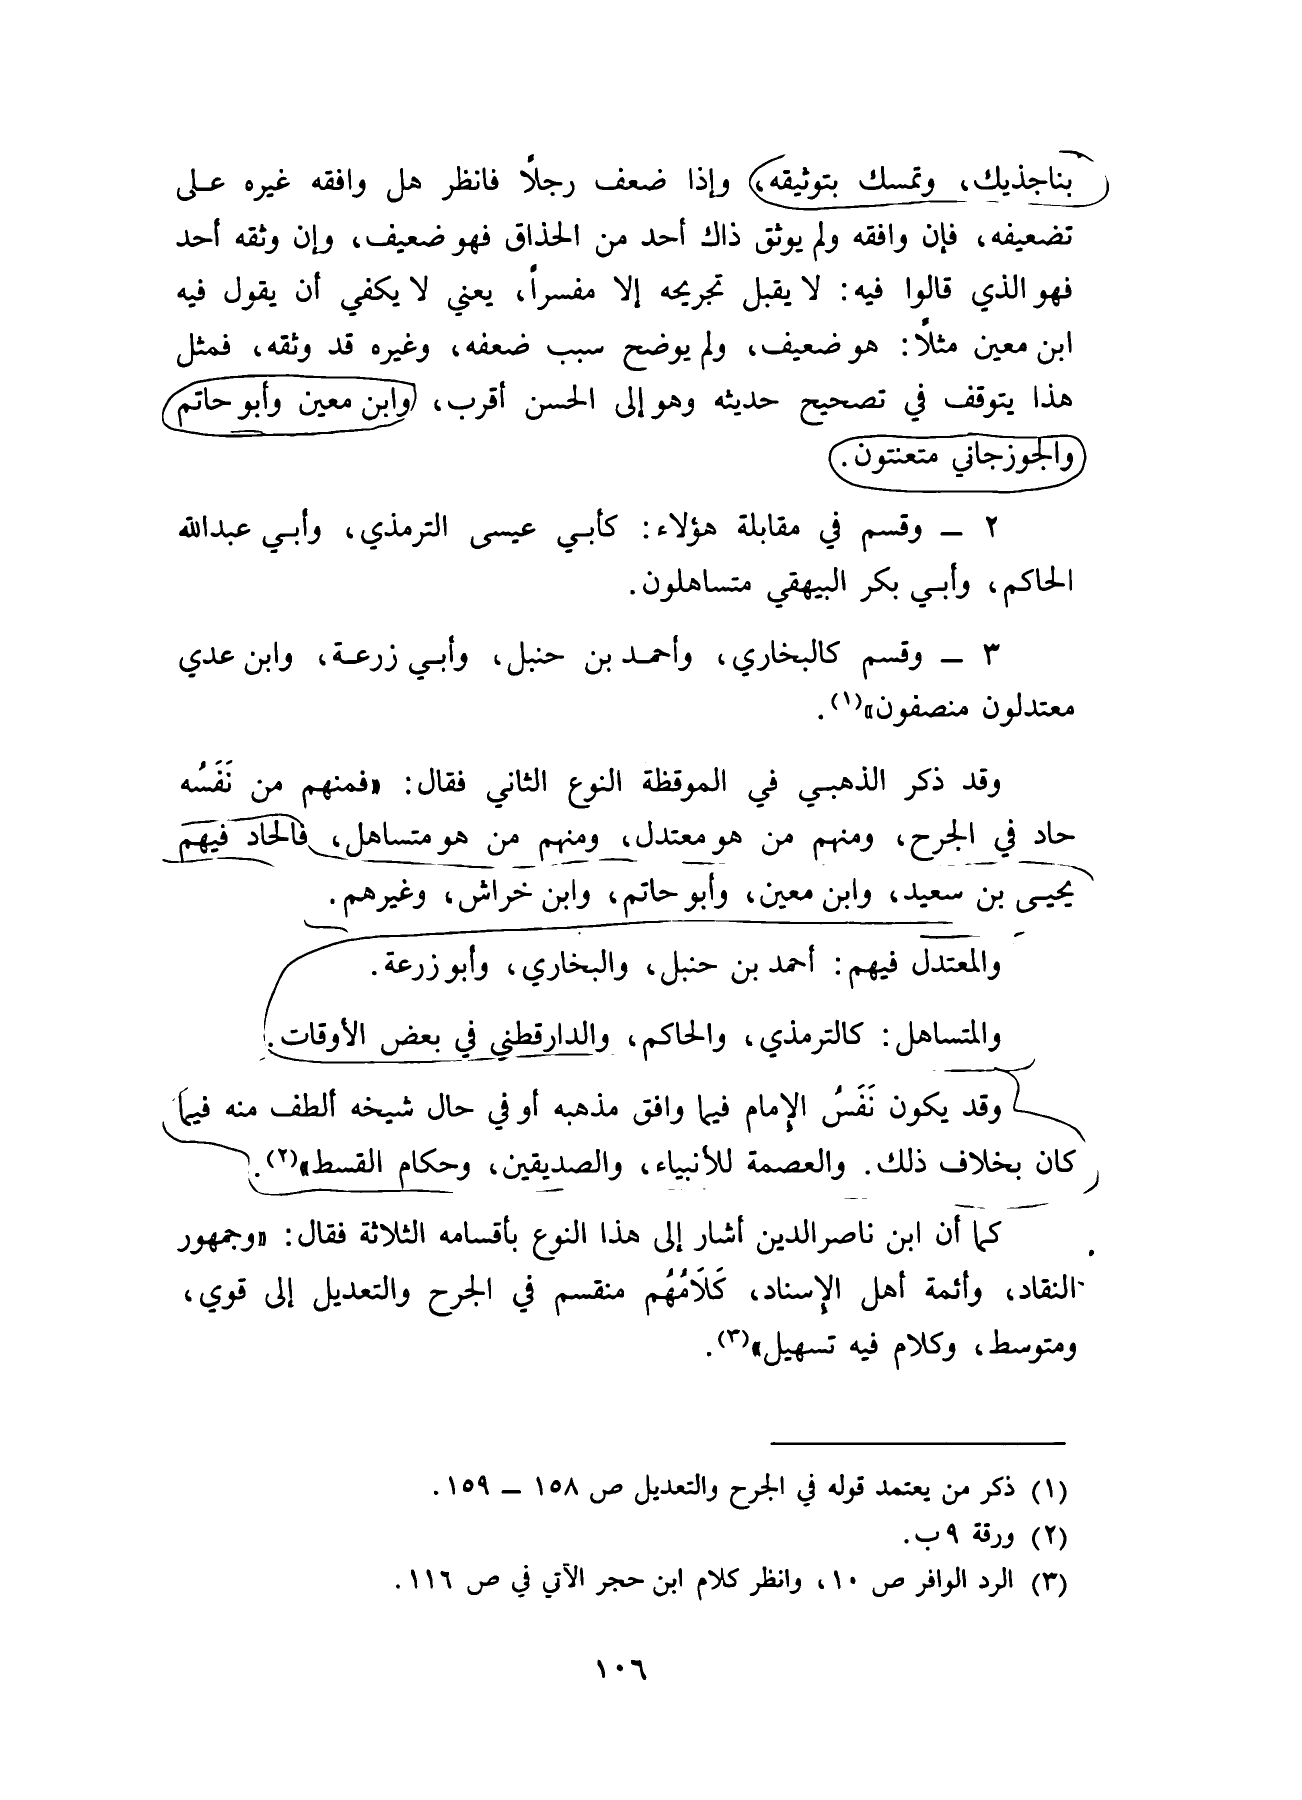 بناجذيك، وتمسك بتوثيقه، وإذا ضعف رجلاً فانظر هل وافقه غيره على
تضعيفه، فإن وافقه ولم يوثق ذاك أحد من الحذاق فهو ضعيف، وإن وثقه أحد
فهو الذي قالوا فيه: لا يقبل تجريحه إلا مفسراً، يعني لا يكفي أن يقول فيه
ابن معين مثلاً: هو ضعيف، ولم يوضح سبب ضعفه، وغيره قد وثقه، فمثل
هذا يتوقف في تصحيح حديثه وهو إلى الحسن أقرب، وابن معين وأبو حاتم
والجوزجاني متعنتون.
٢ ــ وقسم في مقابلة هؤلاء: كأبي عيسى الترمذي، وأبي عبدالله
الحاكم، وأبي بكر البيهقي متساهلون.
٣ ــ وقسم كالبخاري، وأحمد بن حنبل، وأبي زرعة، وابن عدي
معتدلون منصفون»(١).
وقد ذكر الذهبي في الموقظة النوع الثاني فقال: «فمنهم من نَفَسُه
حاد في الجرح، ومنهم من هو معتدل، ومنهم من هو متساهل، فالحاد فيهم
يحيى بن سعيد، وابن معين، وأبو حاتم، وابن خراش، وغيرهم.
والمعتدل فيهم: أحمد بن حنبل، والبخاري، وأبو زرعة.
والمتساهل: كالترمذي، والحاكم، والدارقطني في بعض الأوقات.
وقد يكون نَفَسُ الإمام فيما وافق مذهبه أو في حال شيخه ألطف منه فيما
كان بخلاف ذلك. والعصمة للأنبياء، والصديقين، وحكام القسط»(٢).
كما أن ابن ناصر الدين أشار إلى هذا النوع بأقسامه الثلاثة فقال: «وجمهور
النقاد، وأئمة أهل الإسناد، كَلَامُهُم منقسم في الجرح والتعديل إلى قوي،
ومتوسط، وكلام فيه تسهيل»(٣).
(١) ذكر من يعتمد قوله في الجرح والتعديل ص ١٥٨ ــ ١٥٩.
(٢) ورقة ٩ب.
(٣) الرد الوافر ص ١٠، وانظر كلام ابن حجر الآتي في ص ١١٦.
١٠٦